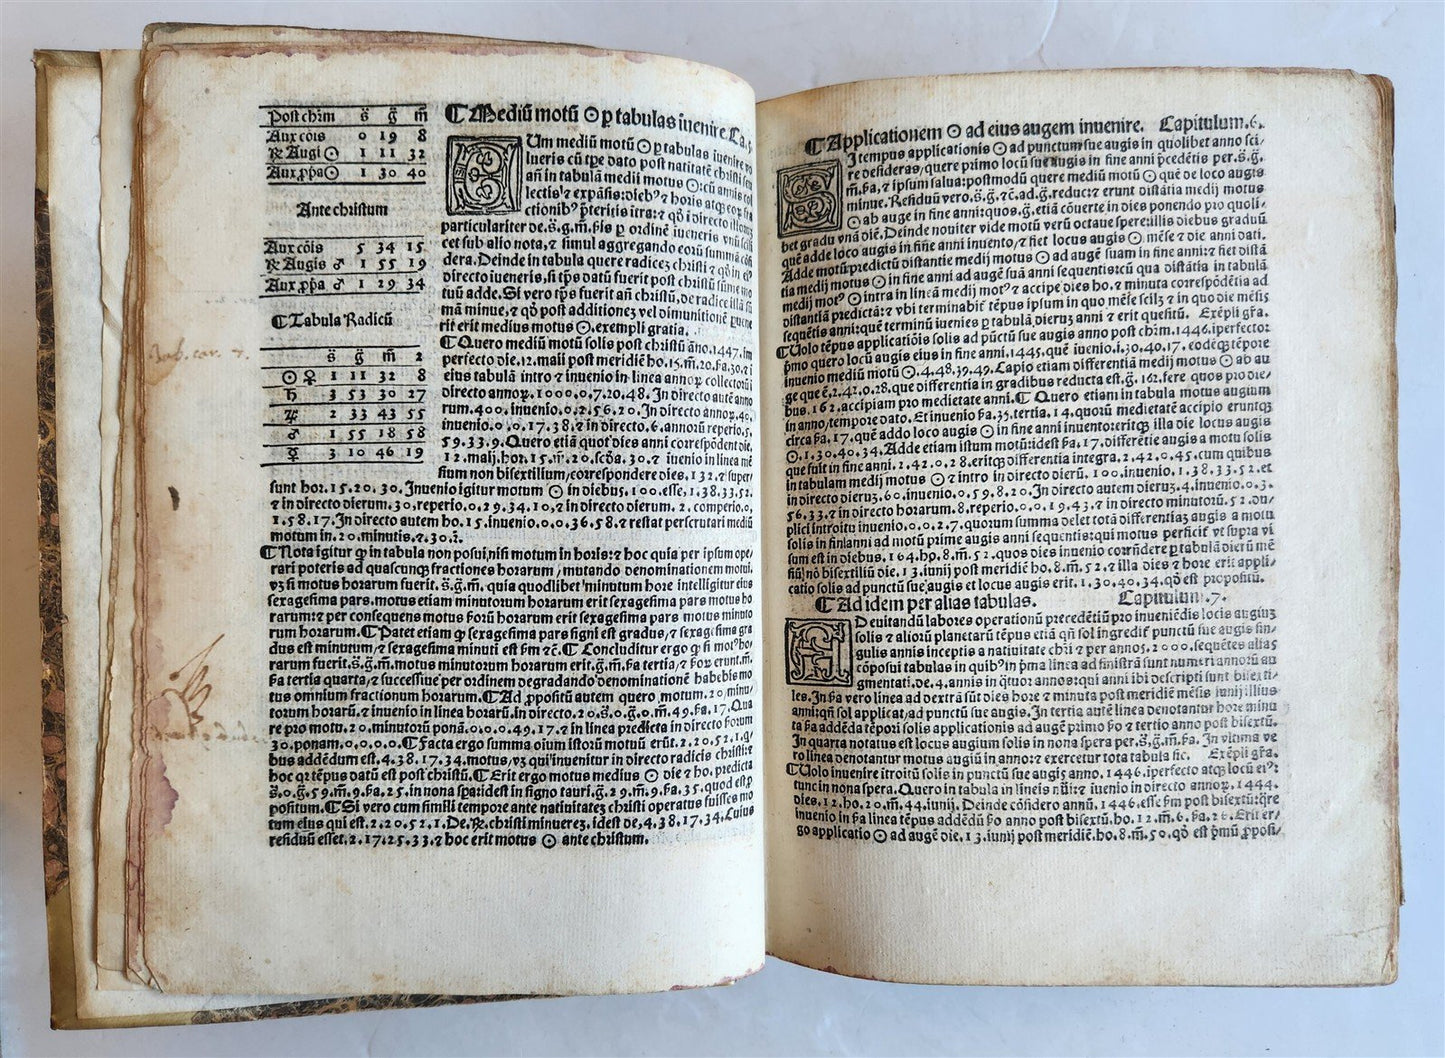 Post chr̄m s̈ g̈ m̄
Aux cōis 0 19 8
⁊ Augi ☉ 1 11 32
Aux ꝓp̄a ☉ 1 30 40
Ante christum
Aux cōis 5 34 15
⁊ Augis ♂ 1 55 19
Aux ꝓp̄a ♂ 1 29 34
¶ Tabula Radicū
s̈ g̈ m̄ 2
☉ ♀ 1 11 32 8
♄ 3 53 30 27
♃ 2 33 43 55
♂ 1 55 18 58
☿ 3 10 46 19
¶ Mediū motū ☉ ꝑ tabulas īuenire. Ca. 5.
Um mediū motū ☉ ꝑ tabulas īuenire vo
lueris cū tp̄e dato post natitatē christi
an̄ in tabulā medii motus ☉: cū annis col
lectis ⁊ expāsis: diebꝰ ⁊ horis atqꝫ eoꝝ
ctionibꝰ p̄teritis itra: ⁊ qd̄ ī directo
particulariter de. s̈. g̈. m̄. p̄is ꝑ ordinē iueneris
cet sub alio nota, ⁊ simul aggregando eorū summā
dera. Deinde in tabula quere radicē christi ⁊ qd̄ in
directo iueneris, si tp̄s datū fuerit post christū sūme
tuū adde. Si vero tp̄s fuerit an̄ christū, de radice illā
mā minue, ⁊ qd̄ post additionē vel diminutionē
rit erit medius motus ☉. exempli gratia.
¶ Quero mediū motū solis post christū āno. 1447. im
perfecto die. 12. maii post meridiē ho. 15. m̄. 20. p̄a. 30. ⁊ ī
eius tabulā intro ⁊ inuenio in linea annoꝝ collectorū ī
directo annoꝝ. 1000. 0. 7. 20. 48. In directo autē anno
rum. 400. inuenio. 0. 2. 56. 20. In directo annoꝝ. 40.
inuenio. 0. 0. 17. 38. ⁊ in directo. 6. annorū reperio. 5.
59. 33. 9. Quero etiā quot dies anni correspōdent die.
12. maij. hor. 15. m̄. 20. scōa. 30. ⁊ iuenio in linea mē
sium non bisextilium, correspondere dies. 132. ⁊ super
sunt hor. 15. 20. 30. Inuenio igitur motum ☉ in diebus. 100. esse, 1. 38. 33. 52.
⁊ in directo dierum. 30, reperio. 0. 29. 34. 10, ⁊ in directo dierum. 2. comperio. 0,
1. 58. 17. In directo autem ho. 15. inuenio. 0. 0. 36. 58. ⁊ restat perscrutari mediū
motum in. 20. minutis. ⁊. 30. 2̄.
¶ Nota igitur ꝙ in tabula non posui, nisi motum in horis: ⁊ hoc quia per ipsum ope,
rari poteris ad quascunqꝫ fractiones horarum, mutando denominationem motui.
vꝫ si motus horarum fuerit. s̈. g̈. m̄. quia quodlibet minutum hore intelligitur eius
sexagesima pars. motus etiam minutorum horarum erit sexagesima pars motus ho
rarum: ⁊ per consequens motus p̄orū horarum erit sexagesima pars motus minuto
rum horarum. ¶ Patet etiam ꝙ sexagesima pars signi est gradus, ⁊ sexagesima gra
dus est minutum, ⁊ sexagesima minuti est p̄m ⁊c̄. ¶ Concluditur ergo ꝙ si motꝰ ho,
rarum fuerit. s̈. g̈. m̄. motus minutorum horarum erit. g̈. m̄. p̄a tertia, ⁊ p̄oꝝ erunt. m̄.
p̄a tertia quarta, ⁊ successiue per ordinem degradando denominationē habebis mo
tus omnium fractionum horarum. ¶ Ad ꝓpositū autem quero motum. 20, minu
torum horarū. ⁊ inuenio in linea horarū. in directo. 20. s̈. 0. g̈. 0. m̄. 49. p̄a. 17. Qua
re pro motu. 20. minutorū ponā. 0. 0. 0. 49. 17. ⁊ in linea predicta in directo p̄orum
30. ponam. 0. 0. 0. 0. ¶ Facta ergo summa oīum istorū motuū erūt. 2. 20. 52. 1. qꝰ
bus addēdum est. 4. 38. 17. 34. motus, vꝫ qui inuenitur in directo radicis christi: ⁊
hoc qꝛ tēpus datū est post christū. ¶ Erit ergo motus medius ☉ die ⁊ ho. predicta
s̈. 0. g̈. 59. m̄. 9. p̄a. 25. in nona spa: idest in signo tauri. g̈. 29. m̄. 9. p̄a. 35. quod est ꝓ
positum. ¶ Si vero cum simili tempore ante natiuitatē christi operatus fuisses mo
tum eius qui est. 2. 20. 52. 1. De. ⁊. christi minuerē, idest de, 4. 38. 17. 34. Cuius
residuū esset. 2. 17. 25. 33. ⁊ hoc erit motus ☉ ante christum.
¶ Applicationem ☉ ad eius augem inuenire. Capitulum. 6.
I tempus applicationis ☉ ad punctum sue augis in quolibet anno sci,
re desideras, quere primo locū sue augis in fine anni p̄cedētis per. s̈. g̈.
m̄. p̄a, ⁊ ipsum salua: postmodū quere mediū motū ☉ quē de loco augis
minue. Residuū vero. s̈. g̈. ⁊c̄. ad. g̈. reduc: ⁊ erunt distātia medij motus
☉ ab auge in fine anni: quos. g̈. etiā cōuerte in dies ponendo pro quoli,
bet gradu vnā diē. Deinde nouiter vide motū verū octaue spere: illis diebus graduū.
quē adde loco augis in fine anni inuento, ⁊ fiet locus augis ☉ mēse ⁊ die anni dati.
Adde motū predictū distantie medij motus ☉ ad augē suam in fine anni: ⁊ fiet distā
tia medij motus ☉ in fine anni ad augē suā anni sequentis: cū qua distātia in tabulā
medij motꝰ ☉ intra in lineā medij motꝰ ⁊ accipe dies ho. ⁊ minuta correspōdētia ad
distantiā predictā: ⁊ vbi terminabit̄ tēpus ipsum in quo mēse scilꝫ ⁊ in quo die mēsis
sequētis anni: quē terminū iuenies ꝑ tabulā dierū anni ⁊ erit quesitū. Exēpli gr̄a.
¶ Uolo tēpus applicatiōis solis ad pūctū sue augis anno post chr̄m. 1446. iperfecto:
p̄mo quero locū augis eius in fine anni. 1445. quē iuenio. 1. 30. 40. 17. eodēqꝫ tēpore
inuenio mediū motū ☉. 4. 48. 39. 49. Capio etiam differentiā medij motus ☉ ab au
ge que ē. 2. 42. 0. 28. que differentia in gradibus reducta est. g̈. 162. fere quos pro die,
bus. 162. accipiam pro medietate anni. ¶ Quero etiani in tabula motus augium
in anno, tempore dato. Et inuenio p̄a. 35. tertia. 14. quorū medietatē accipio eruntqꝫ
circa p̄a. 17. quē addo loco augis ☉ in fine anni inuento: eritqꝫ illa die locus augis
☉. 1. 30. 40. 34. Adde etiam istum motū: idest p̄a. 17. differētie augis a motu solis
que fuit in fine anni. 2. 42. 0. 28. eritqꝫ differentia integra. 2. 42. 0. 45. cum quibus
in tabulam medij motus ☉ ⁊ intro in directo dierū. 100. inuenio. 1. 38. 33. 52. et
in directo dierū. 60. inuenio. 0. 59. 8. 20. In directo autem dierū. 4. inuenio. 0. 3.
56. 33. ⁊ in directo horarum. 8. reperio. 0. 0. 19. 43. ⁊ in directo minutorū. 52. du,
plici introitu inuenio. 0. 0. 2. 7. quorum summa delet totā differentiā augis a motu
solis in fin anni ad motū prime augis anni sequentis: qui motus perficit̄ vt supra vi
sum est in diebus. 164. ho. 8. m̄. 52. quos dies inuenio corrn̄dere ꝑ tabulā dierū mē
siū nō bisextiliū die. 13. iunij post meridiē ho. 8. m̄. 52. ⁊ illa dies ⁊ hore erit appli,
catio solis ad punctū sue augis et locus augis erit. 1. 30. 40. 34. qd̄ est propositū.
¶ Ad idem per alias tabulas. Capitulum. 7.
D euitandū labores operationū precedētiū pro inueniēdis locis augiuꝫ
solis ⁊ aliorū planetarū tēpus etiā qn̄ sol ingredit̄ punctū sue augis sin,
gulis annis inceptis a natiuitate chr̄i ⁊ per annos. 2000. sequētes alias
cōposui tabulas in quibꝰ in p̄ma linea ad finistrā sunt numeri annorū au
gmentati. de. 4. annis in qtuor annos: qui anni ibi descripti sunt bisexti,
les. In p̄a vero linea ad dextrā sūt dies hore ⁊ minuta post meridiē mēsis iunij illius
anni: qn̄ sol applicat, ad punctū sue augis. In tertia autē linea denotantur hore minu
ta p̄a addēda tēpori solis applicationis ad augē primo p̄o ⁊ tertio anno post bisextū.
In quarta notatus est locus augium solis in nona spera per. s̈. g̈. m̄. p̄a. In vltima ve
ro linea denotantur motus augiū in anno: ⁊ exercetur tota tabula sic. Exēpli gr̄a.
¶ Uolo inuenire itroitū solis in punctū sue augis anno. 1446. iperfecto atqꝫ locū eiꝰ:
tunc in nona spera. Quero in tabula in lineis nūi: ⁊ iuenio in directo anno ꝝ. 1444.
dies. 12. ho. 20. m̄. 44. iunij. Deinde cōsidero annū. 1446. esse p̄m post bisextū: qre
inuenio in p̄a linea tēpus addēdū p̄o anno post bisextū ho. 12. m̄. 6. p̄a. 26. Erit er,
go applicatio ☉ ad augē die. 13. iunij post meridiē. ho. 8. m̄. 50. qd̄ est p̄mū ꝓposi,